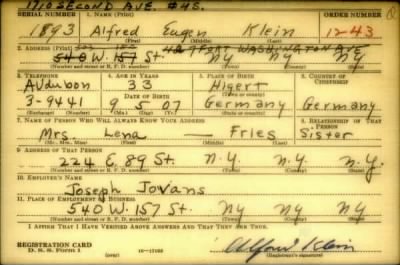 1710 SECOND AVE. #4S.
SERIAL NUMBER 1. NAME (Print) ORDER NUMBER
1893 Alfred Eugen Klein 1243
(First) (Middle) (Last)
2. ADDRESS (Print) FORT WASHINGTON AVE
540 W. 157 St. NY NY NY
(Number and street or R. F. D. number) (Town) (County) (State)
3. TELEPHONE 4. AGE IN YEARS 5. PLACE OF BIRTH 6. COUNTRY OF CITIZENSHIP
AUdubon 33 Higert
DATE OF BIRTH (Town or county)
3-9441 9 5 07 Germany Germany
(Exchange) (No.) (Mo.) (Day) (Yr.) (State or country)
7. NAME OF PERSON WHO WILL ALWAYS KNOW YOUR ADDRESS 8. RELATIONSHIP OF THAT PERSON
Mrs. Lena — Fries Sister
(Mr., Mrs., Miss) (First) (Middle) (Last)
9. ADDRESS OF THAT PERSON
224 E. 89 St. N.Y. N.Y. N.Y.
(Number and street or R. F. D. number) (Town) (County) (State)
10. EMPLOYER'S NAME
Joseph Jovans
11. PLACE OF EMPLOYMENT OR BUSINESS
540 W. 157 St NY NY NY
(Number and street or R. F. D. number) (Town) (County) (State)
I AFFIRM THAT I HAVE VERIFIED ABOVE ANSWERS AND THAT THEY ARE TRUE.
REGISTRATION CARD
D. S. S. Form 1 16-17105 Alfred Klein
(Registrant's signature)